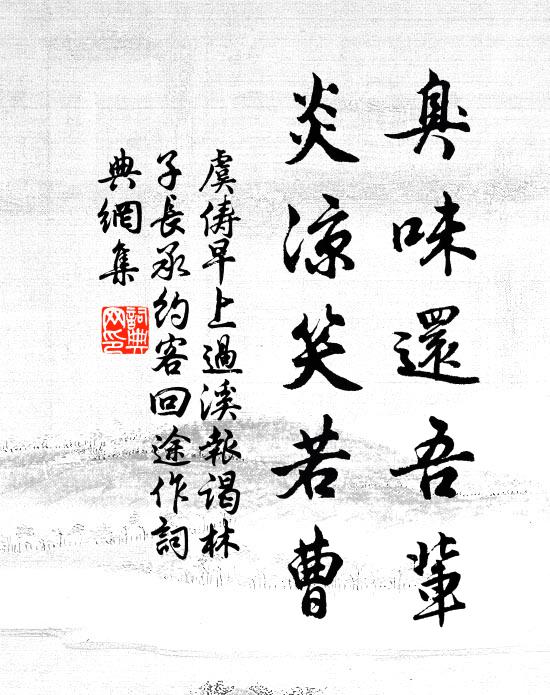 臭味還吾輩
炎涼笑若曹
虞儔早上過溪報謁林
子長承約客回途作詞
典網集
詞典
网印